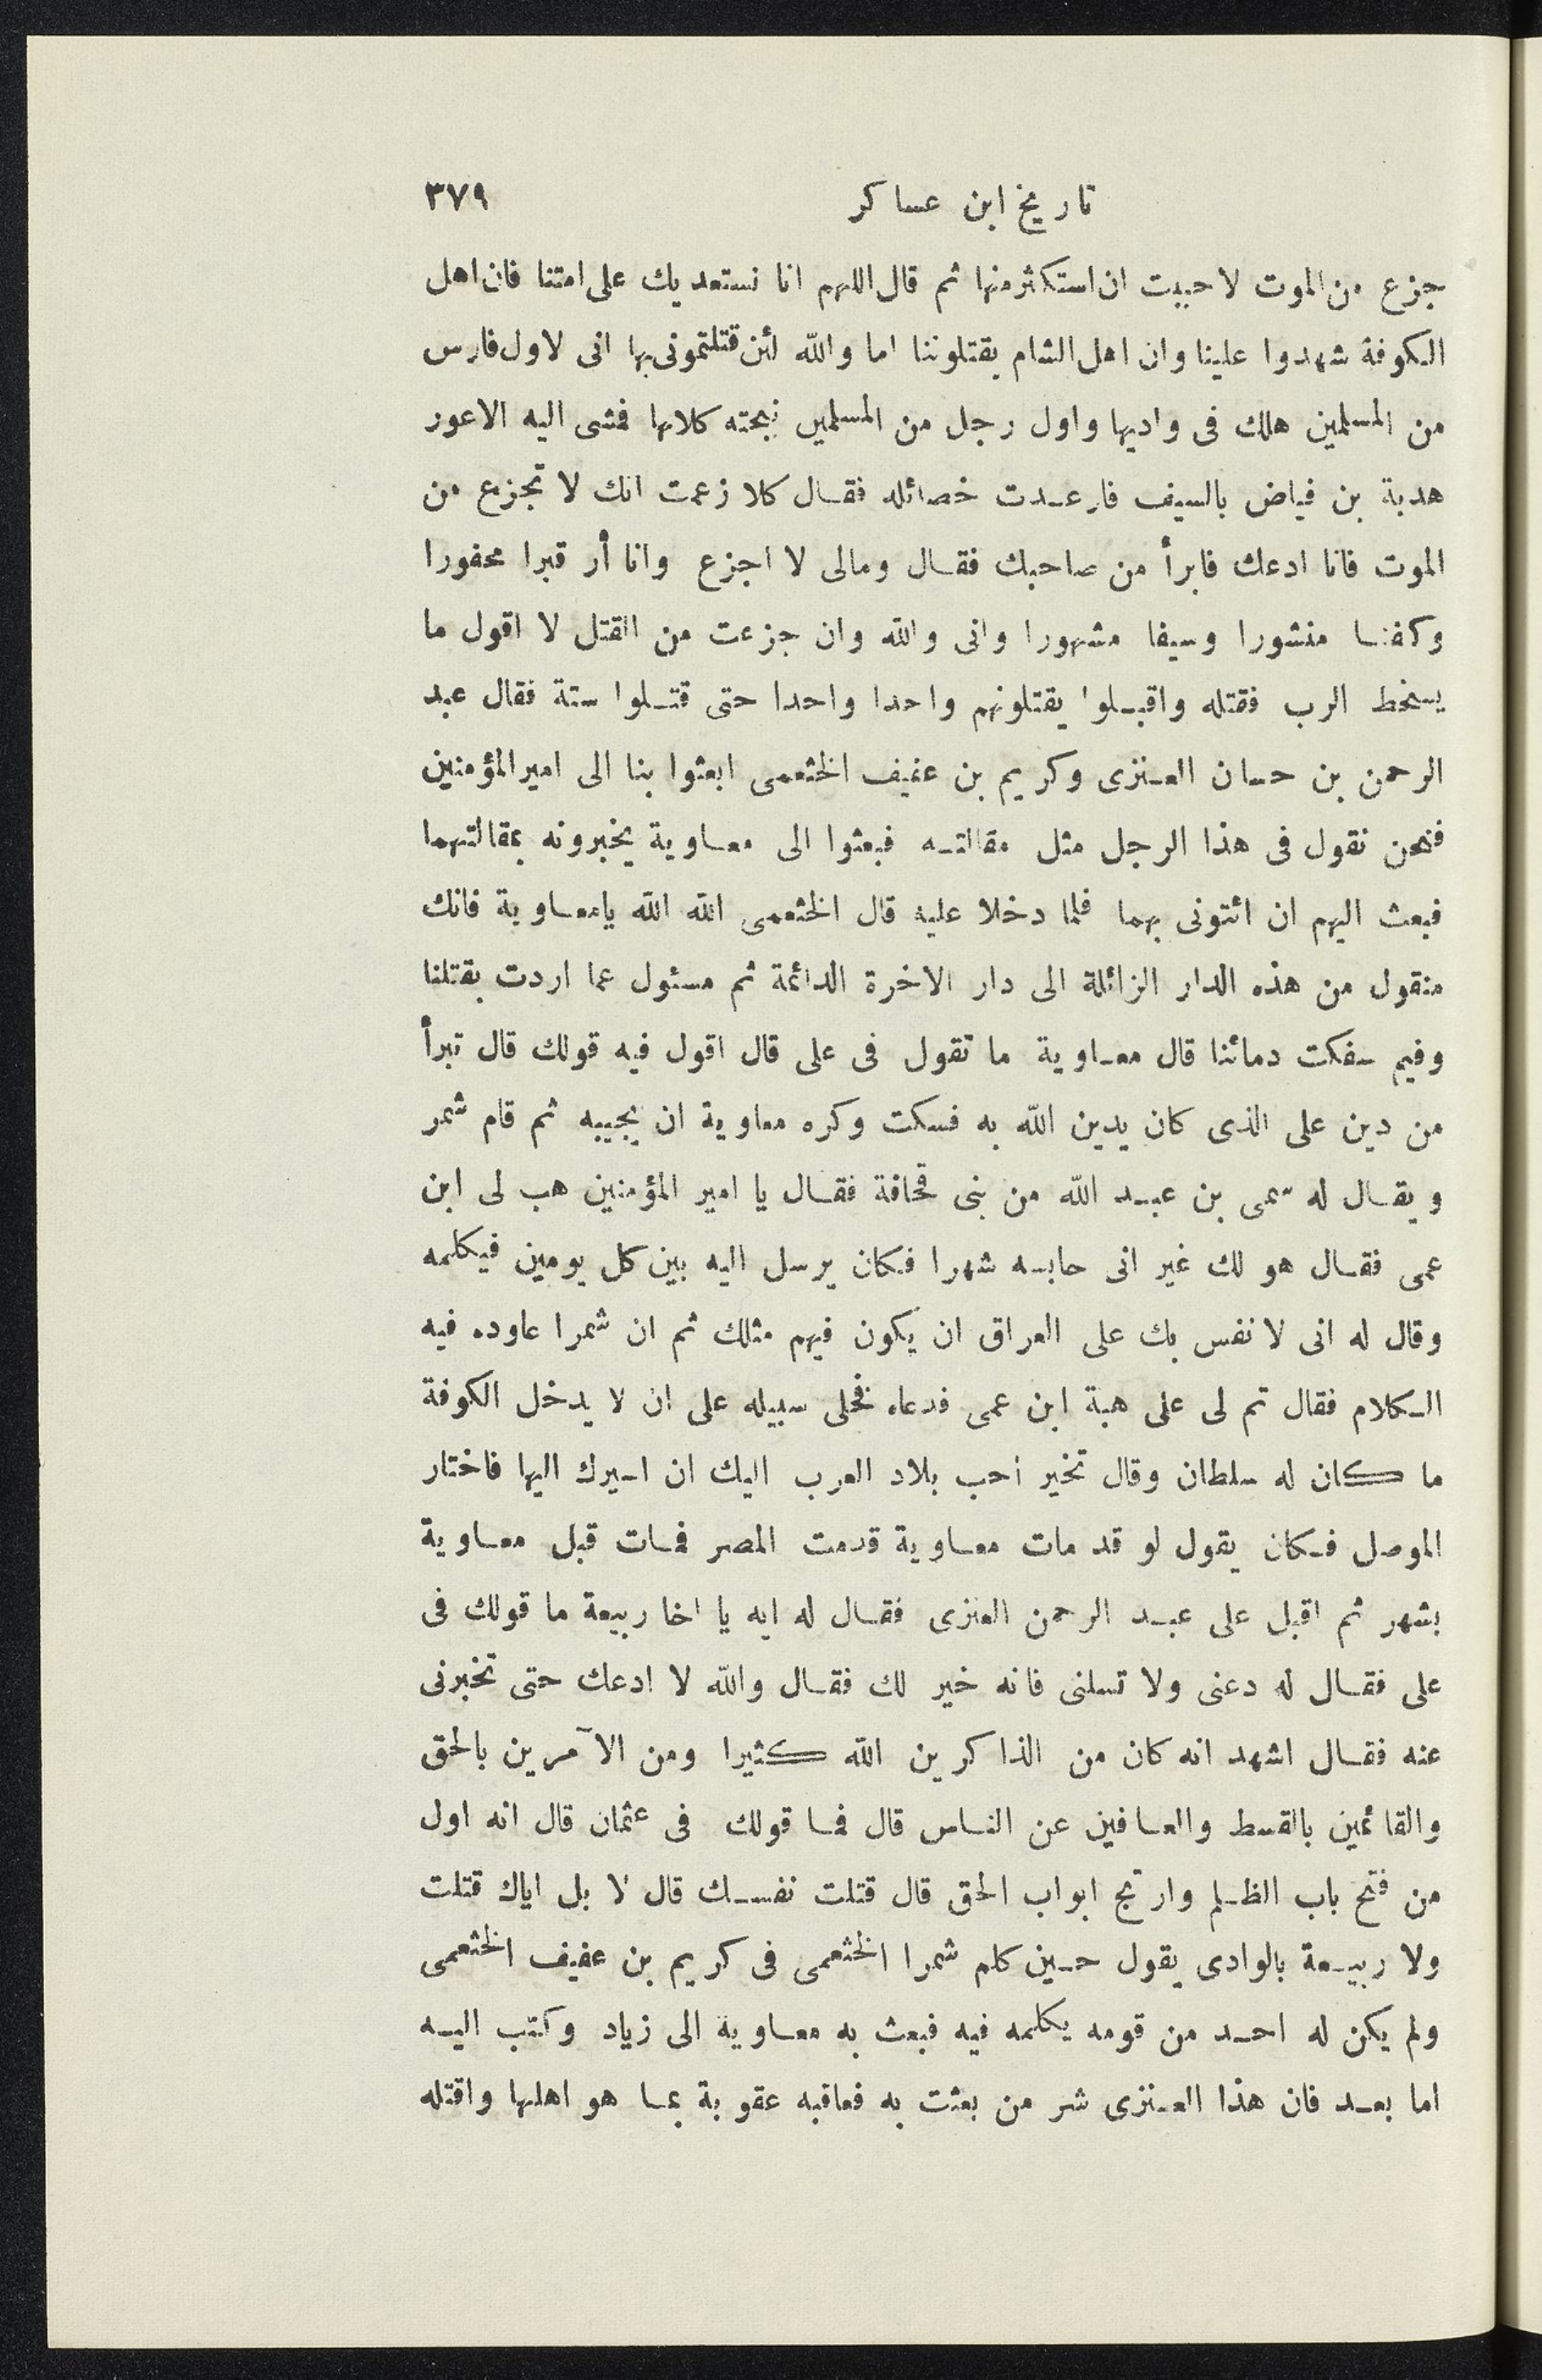 تاريخ ابن عساكر ٣٧٩
جزع من الموت لاحببت ان استكثر منها ثم قال اللهم انا نستعديك على امتنا فان اهل
الكوفة شهدوا علينا وان اهل الشام يقتلوننا اما والله لئن قتلتمونى بها انى لاول فارس
من المسلمين هلك فى واديها واول رجل من المسلمين نبحته كلابها فمشى اليه الاعور
هدبة بن فياض بالسيف فارعدت خصائله فقال كلا زعمت انك لا تجزع من
الموت فانا ادعك فابرأ من صاحبك فقال ومالى لا اجزع وانا أر قبرا محفورا
وكفنا منشورا وسيفا مشهورا وانى والله وان جزعت من القتل لا اقول ما
يسخط الرب فقتله واقبلوا يقتلونهم واحدا واحدا حتى قتلوا ستة فقال عبد
الرحمن بن حسان العنزى وكريم بن عفيف الخثعمى ابعثوا بنا الى امير المؤمنين
فنحن نقول فى هذا الرجل مثل مقالته فبعثوا الى معاوية يخبرونه بمقالتهما
فبعث اليهم ان ائتونى بهما فلما دخلا عليه قال الخثعمى الله الله يامعاوية فانك
منقول من هذه الدار الزائلة الى دار الاخرة الدائمة ثم مسئول عما اردت بقتلنا
وفيم سفكت دمائنا قال معاوية ما تقول فى على قال اقول فيه قولك قال تبرأ
من دين على الذى كان يدين الله به فسكت وكره معاوية ان يجيبه ثم قام شمر
ويقال له سمى بن عبد الله من بنى قحافة فقال يا امير المؤمنين هب لى ابن
عمى فقال هو لك غير انى حابسه شهرا فكان يرسل اليه بين كل يومين فيكلمه
وقال له انى لانفس بك على العراق ان يكون فيهم مثلك ثم ان شمرا عاوده فيه
الكلام فقال تم لى على هبة ابن عمى فدعاه فخلى سبيله على ان لا يدخل الكوفة
ما كان له سلطان وقال تخير احب بلاد العرب اليك ان اسيرك اليها فاختار
الموصل فكان يقول لو قد مات معاوية قدمت المصر فمات قبل معاوية
بشهر ثم اقبل على عبد الرحمن العنزى فقال له ايه يا اخا ربيعة ما قولك فى
على فقال له دعنى ولا تسلنى فانه خير لك فقال والله لا ادعك حتى تخبرنى
عنه فقال اشهد انه كان من الذاكرين الله كثيرا ومن الآمرين بالحق
والقائمين بالقسط والعافين عن الناس قال فما قولك فى عثمان قال انه اول
من فتح باب الظلم وارتج ابواب الحق قال قتلت نفسك قال لا بل اياك قتلت
ولا ربيعة بالوادى يقول حين كلم شمرا الخثعمى فى كريم بن عفيف الخثعمى
ولم يكن له احد من قومه يكلمه فيه فبعث به معاوية الى زياد وكتب اليه
اما بعد فان هذا العنزى شر من بعثت به فعاقبه عقوبة بما هو اهلها واقتله